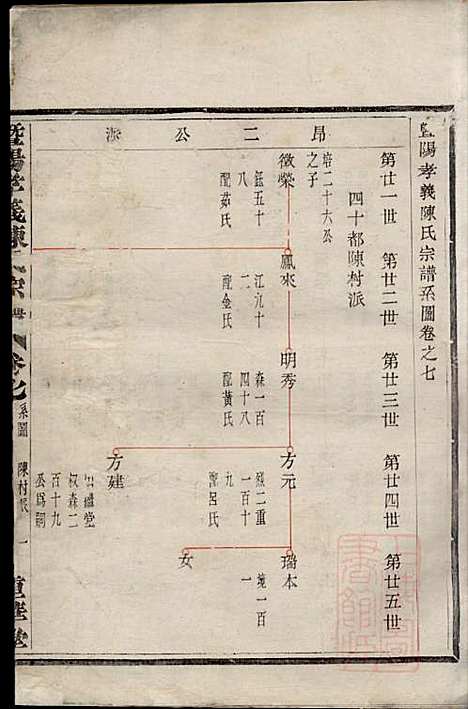 暨陽孝義陳氏宗譜系圖卷之七
第廿一世 第廿二世 第廿三世 第廿四世 第廿五世
四十都陳村派
昂二公派
培二十六公
之子
徵榮
鈺五十
八
配茹氏
鳳來
江九十
二
配金氏
明秀
森一百
四十八
配黃氏
方元
烈二重
一百十
九
配呂氏
璐本
一百
一
女
方建
出繼堂
叔森二
百十九
公為嗣
暨陽孝義陳氏宗譜
卷七
系圖
陳村派
一